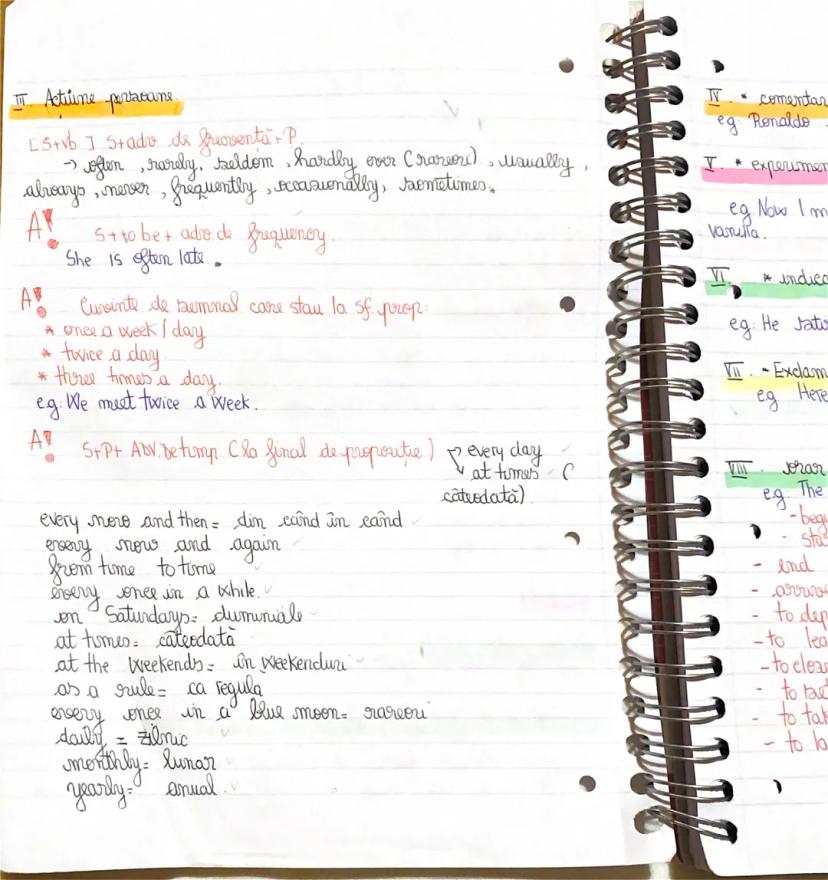 III. Acțiune persoane
[S+vb] S+adv. de frecvență+P
→ often, rarely, seldom, hardly ever (rareori), usually,
always, never, frequently, occasionally, sometimes.
A! S+to be+ adv. de frequency.
She is often late.
A! Cuvinte de semnal care stau la sf. prop:
* once a week/day
* twice a day.
* three times a day.
eg: We meet twice a week.
A! S+P+ ADV. De timp (la final de propoziție) every day
at times (
câteodată)
every now and then = din când în când
every now and again
from time to time
every once in a while.
on Saturdays = duminiale
at times = câteodată
at the weekends = în weekenduri
as a rule = ca regula
every once in a blue moon = rareori
daily = zilnic
monthly = lunar
yearly = anual.
IV. * comentar
eg Ronaldo
V. * experimen
eg. Now I m
Vanilla.
VI * indica
eg: He
VII. - Exclam
eg Here
VIII. orar
eg: The
- beg
- sta
- end
- arriv
- to dep
- to lea
- to close
- to
- to tak
- to la